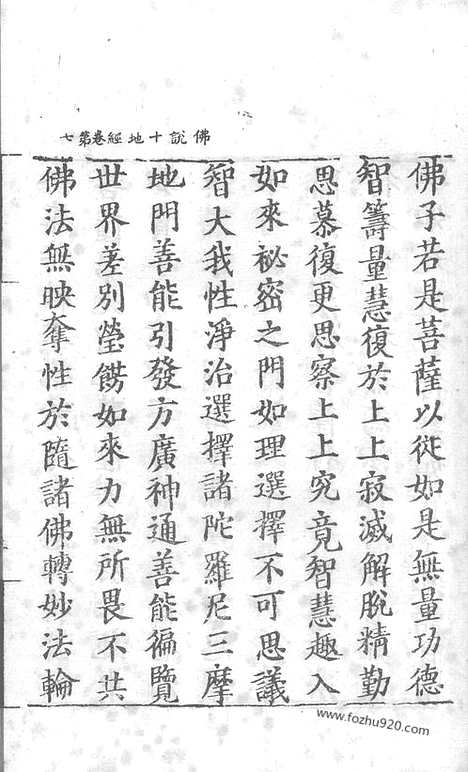 佛說十地經卷第七
佛子若是菩薩以從如是無量功德
智籌量慧復於上上寂滅解脫精勤
思慕復更思察上上究竟智慧趣入
如來祕密之門如理選擇不可思議
智大我性淨治選擇諸陀羅尼三摩
地門善能引發方廣神通善能徧覽
世界差別瑩飾如來力無所畏不共
佛法無映奪性於隨諸佛轉妙法輪
www.fozhu920.com